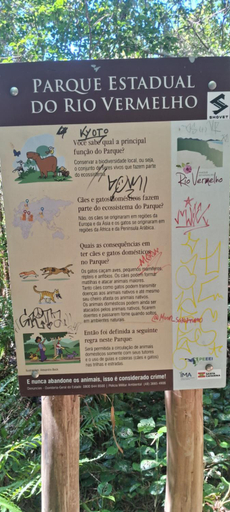 PARQUE ESTADUAL
DO RIO VERMELHO
SHOVET
KYOTO
Você sabe qual a principal
função do Parque?
Conservar a biodiversidade local, ou seja,
o conjunto de seres vivos que fazem parte
do ecossistema.
Rio Vermelho
Cães e gatos domésticos fazem
parte do ecossistema do Parque?
Não, os cães se originaram em regiões da
Europa e da Ásia e os gatos se originaram em
regiões da África e da Península Arábica.
Quais as consequências em
ter cães e gatos domésticos
no Parque?
Os gatos caçam aves, pequenos
répteis e anfíbios. Os cães podem formar
matilhas e atacar animais maiores.
Tanto cães como gatos podem transmitir
doenças aos animais nativos e até mesmo
seu cheiro afasta os animais nativos.
Os animais domésticos podem ainda ser
atacados pelos animais nativos, ficarem
doentes e passarem fome quando soltos
em ambientes naturais.
Então foi definida a seguinte
regra neste Parque
Será permitida a circulação de animais
domésticos somente com seus tutores
e o uso de guias e coleiras (cães e gatos)
nas trilhas e estradas.
E nunca abandone os animais, isso é considerado crime!
IMA